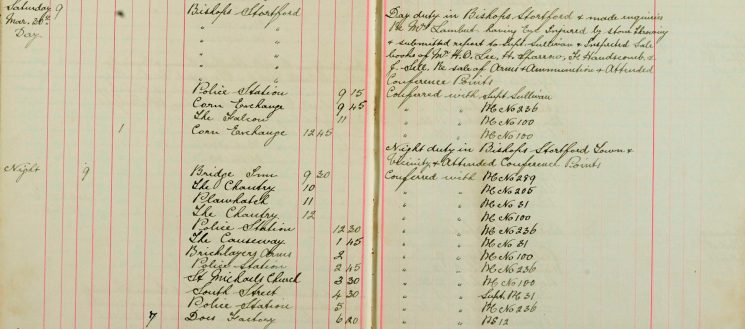 Saturday 9 Bishops Stortford Day duty in Bishops Stortford & made enquiries
Mar. 26th " Re Mrs Lambert having Eye Injured by stone throwing
Day " & submitted report to Supt. Sullivan & Inspected Sale
" books of Mr H.O. Lee, H. Sparrow, F. Handscomb, &
" Re sale of Arms & Ammunition & Attended
" Conference Points
Police Station 9 15 Conferred with Supt. Sullivan
Corn Exchange 9 45 " " PC No 236
The Falcon 11 " " PC No 100
1 Corn Exchange 12 45 " " PC No 100
Night duty in Bishops Stortford Town &
Vicinity, & Attended Conference Points
Night 9 Bridge Inn 9 30 Conferred with PC No 289
The Chantry 10 " " PC No 205
Plawhatch 11 " " PC No 31
The Chantry 12 " " PC No 100
Police Station 12 30 " " PC No 236
The Causeway 1 45 " " PC No 31
Bricklayers Arms 2 " " PC No 100
Police Station 2 45 " " PC No 236
St Michaels Church 3 30 " " PC No 100
South Street 4 30 " " 31
Police Station 5 " " PC No 236
7 Factory 6 20 " " 12